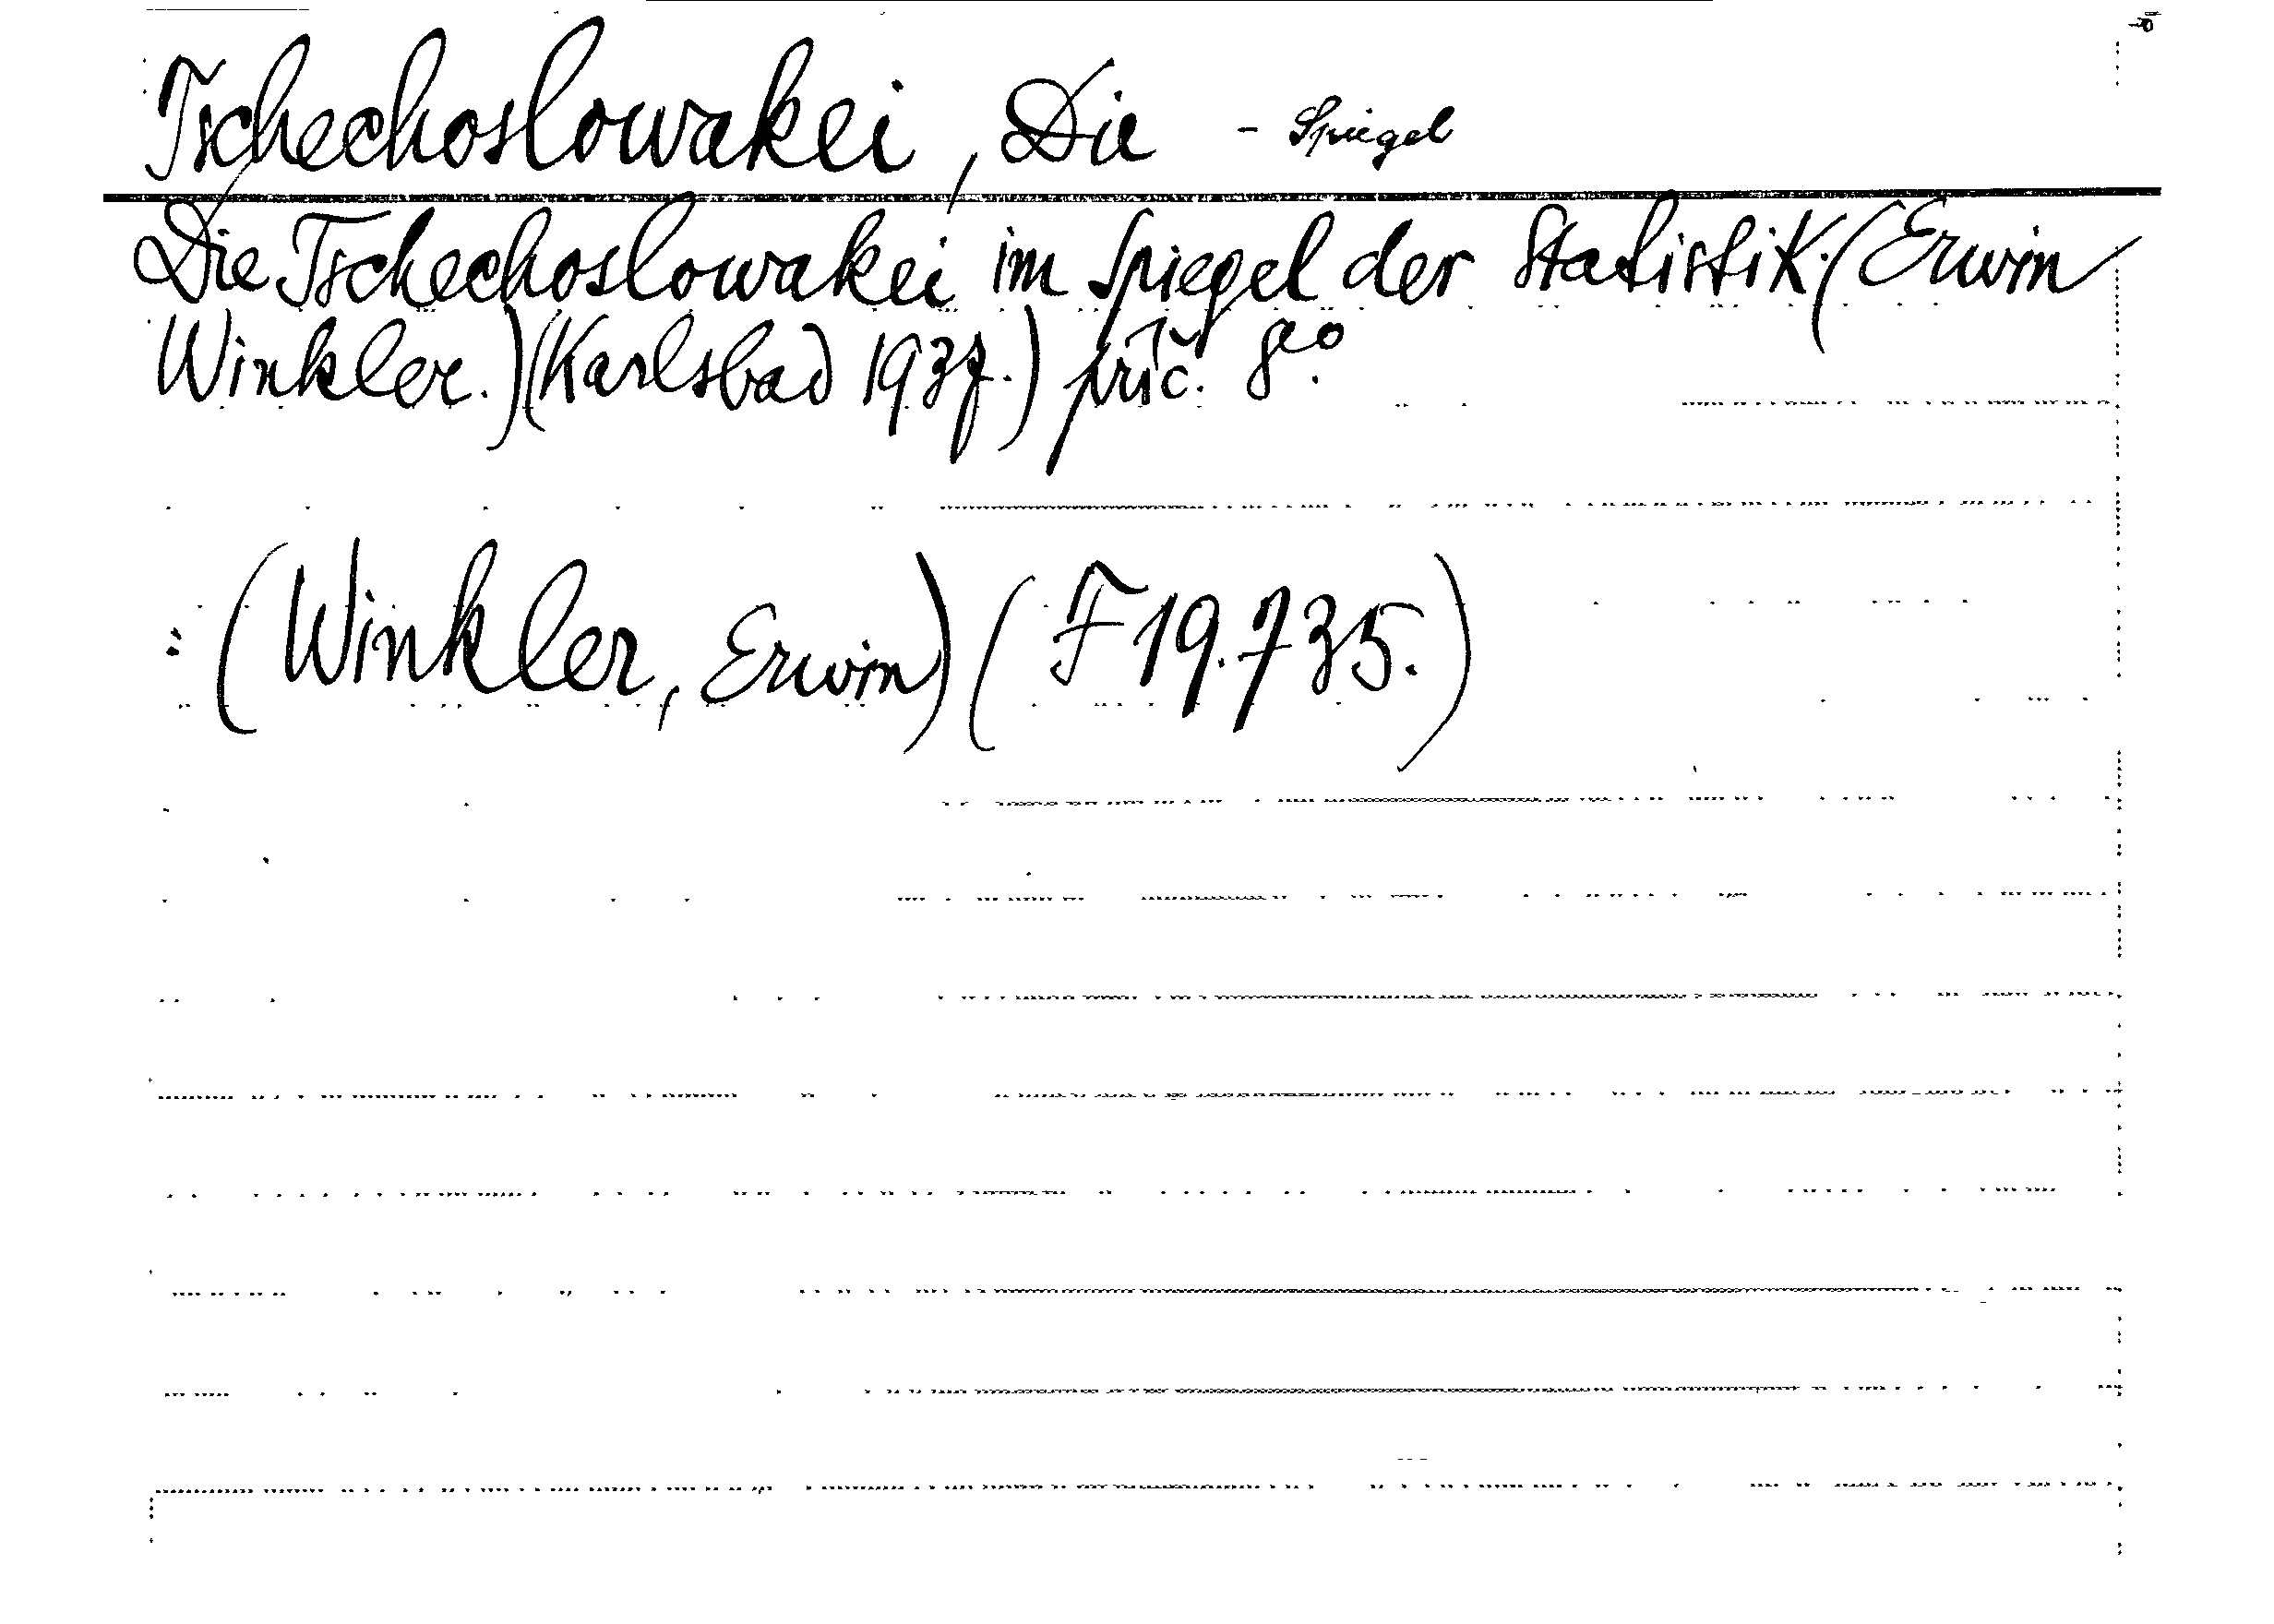 Tschechoslowakei, Die - Spiegel
Die Tschechoslowakei im Spiegel der Statistik. (Erwin
Winkler.) (Karlsbad 1937.) příč. 8°.
: (Winkler, Erwin) (F 19.735.)